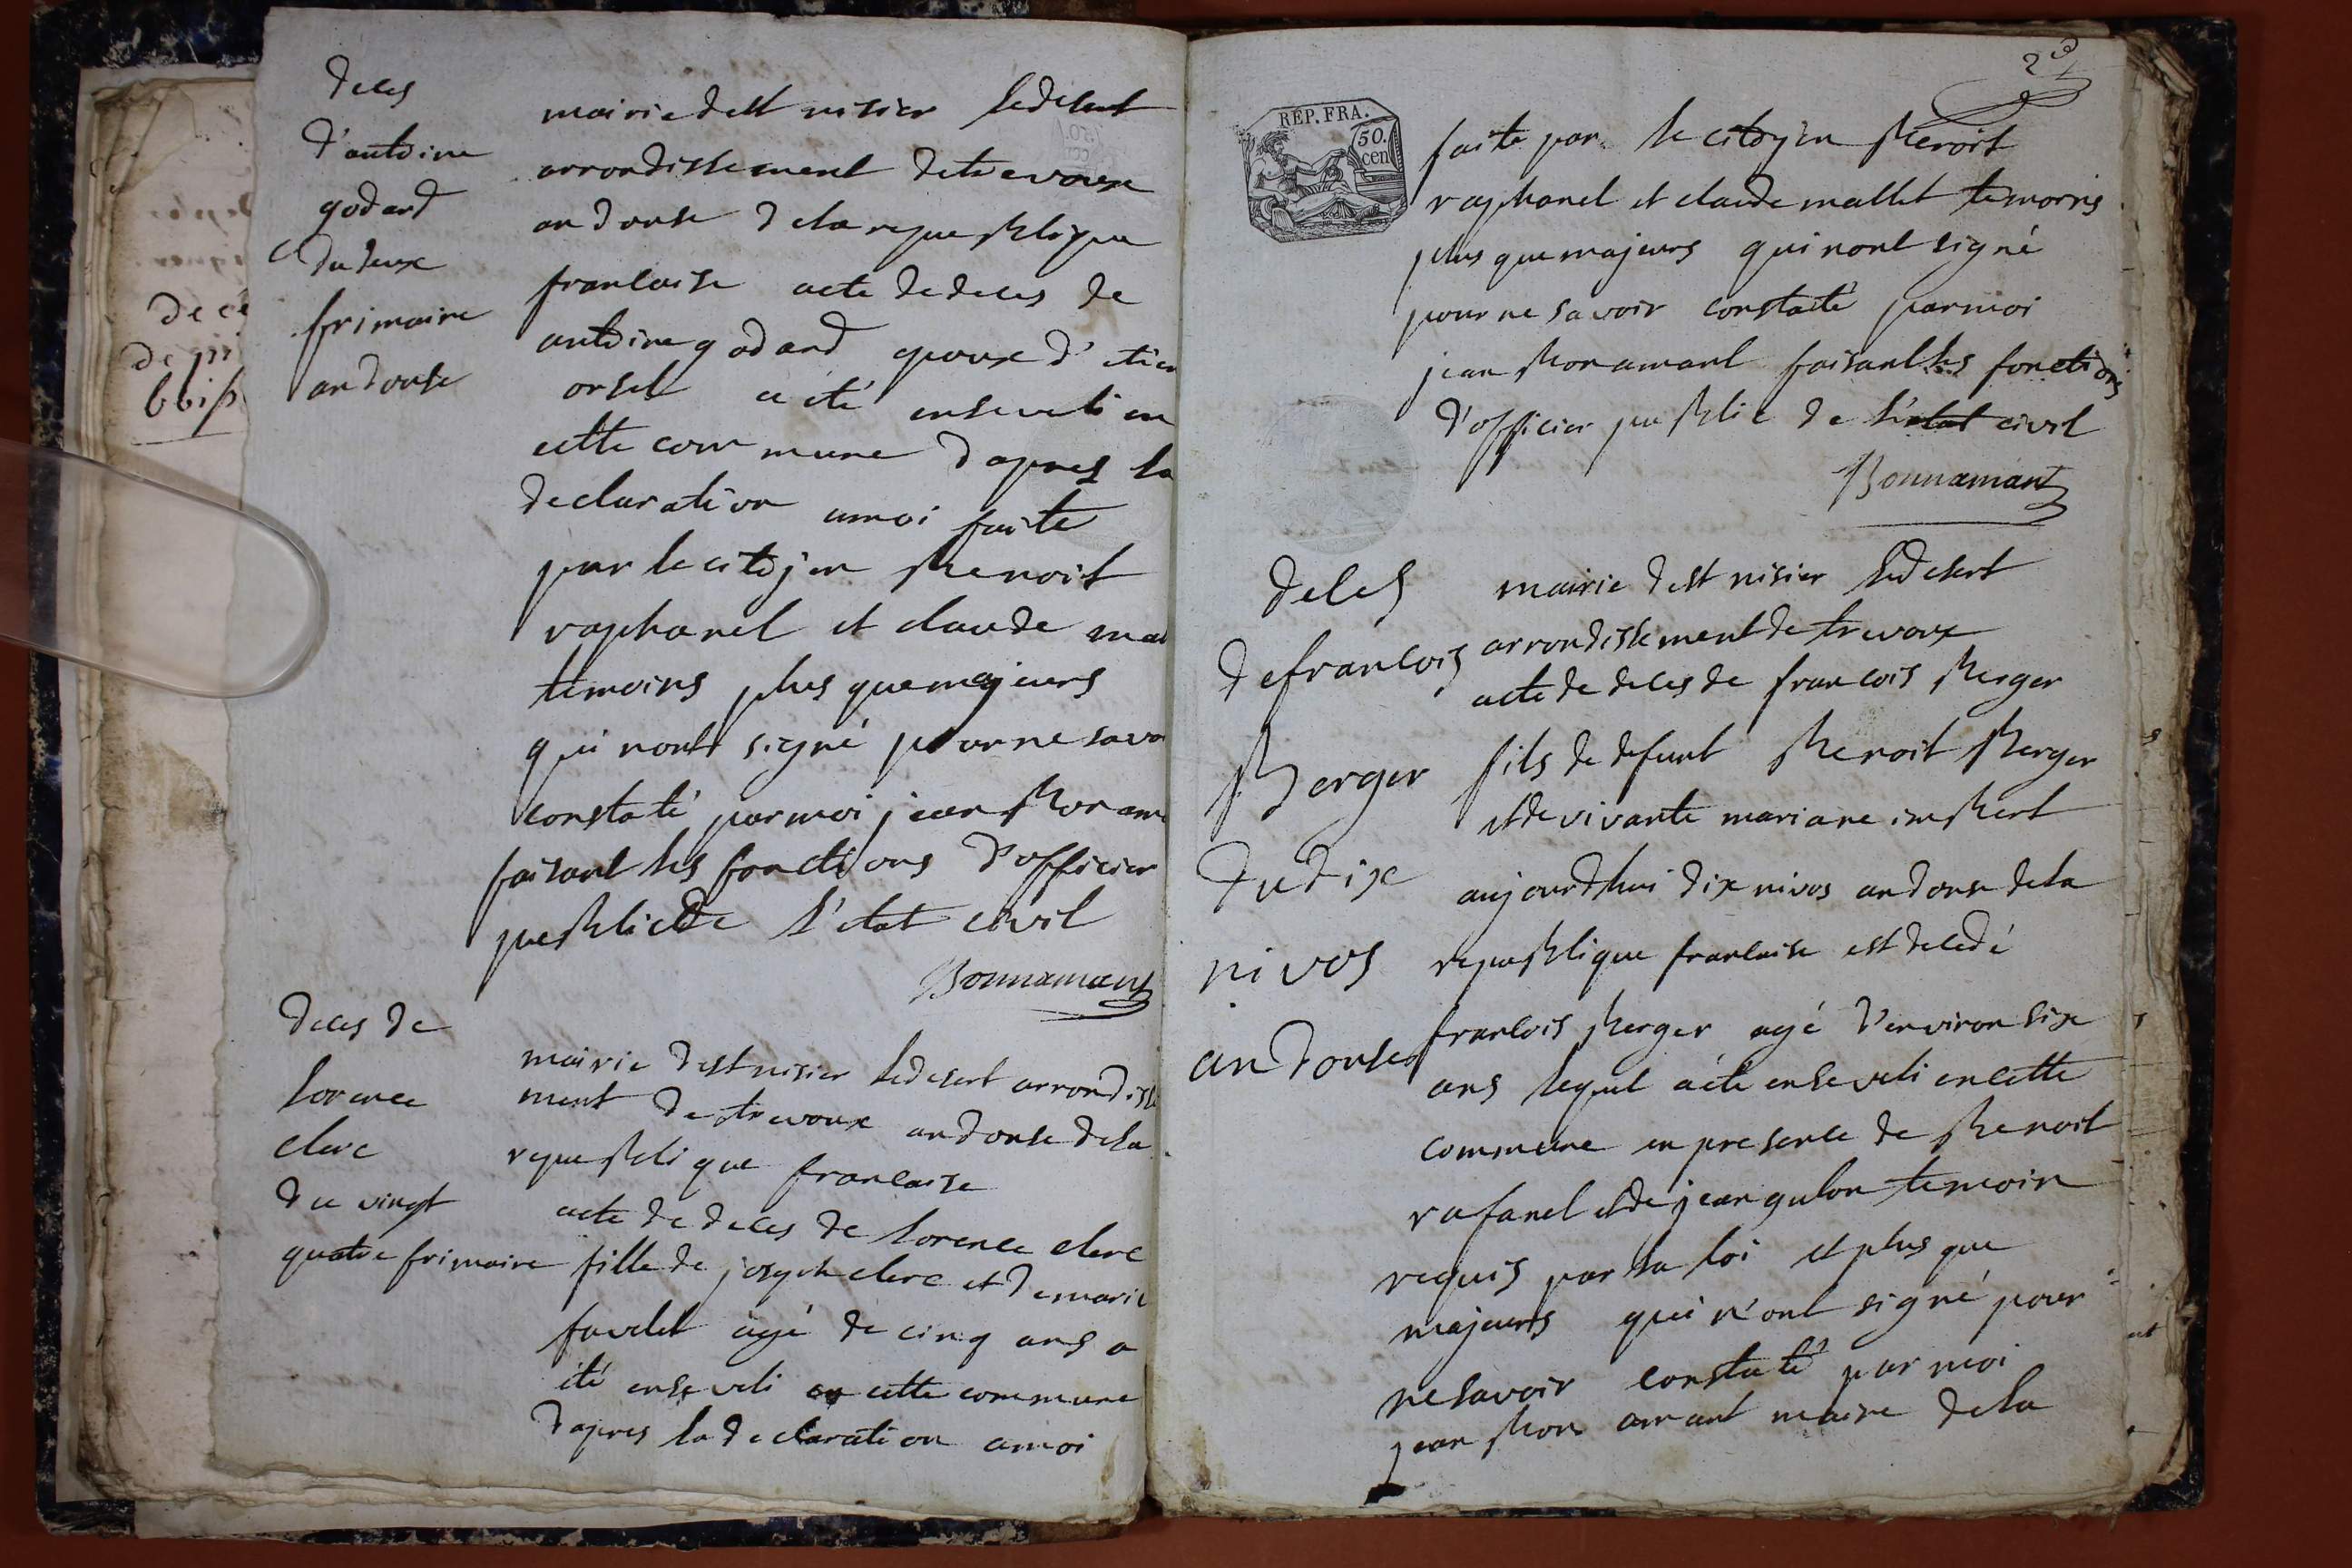 deces
d'antoine
godard
du deux
frimaire
an donse
mairie dest nisier ledesert
arrondissement detrevoux
an donse dela republique
francaise acte dedeces de
antoine godard epoux d'etien
orsel a eté enseveli en
cette commune dapres la
declaration amoi faite
par lecitojen benoit
raphanel et claude mal
temoins plus quemajeurs
qui nont signé pour ne savo
constaté parmoi jean bonam
faisant les fonctions d'officier
publicde l'etat civil
Bonnamant
deces de
lorence
clerc
du vingt
quatre frimaire
mairie dest nisier ledesert arrondisse
ment de trevoux an donse dela
republique francaise
acte de deces de lorence clerc
fille de joseph clerc et demarie
favelet agé de cinq ans a
été enseveli en cette commune
dapres la declaration amoi
23
REP. FRA.
50.
cen
faite par le citoyen benoit
raphanel et claude mallet temoins
plus que majeurs qui nont signé
pour ne savoir constaté parmoi
jean bonamant faisant les fonctions
d'officier public de l'etat civil
Bonnamant
deces
defrancois
Berger
du dix
nivos
an donse
mairie dest nisier ledesert
arrondissement de trevoux
acte de deces de francois berger
fils de defunt benoit berger
et de vivante mariane imbert
aujourdhui dix nivos an donse dela
republique francaise est decedé
francois berger agé d'environ six
ans lequel a été enseveli encette
commune en presence de benoit
rafanel et de jean gulon temoin
requis par la loi et plus que
majeurs qui n'ont signé pour
nesavoir constaté par moi
jean bon amant maire dela